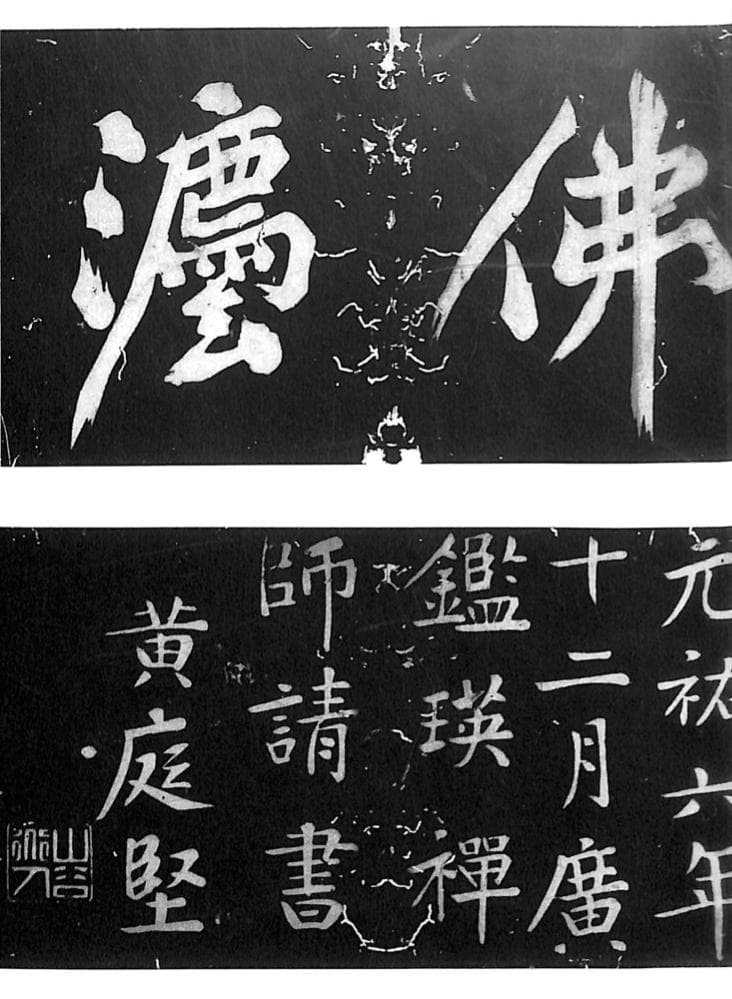 佛灋
元祐六年
十二月廣
鑑瑛禪
師請書
黄庭堅
山谷道人